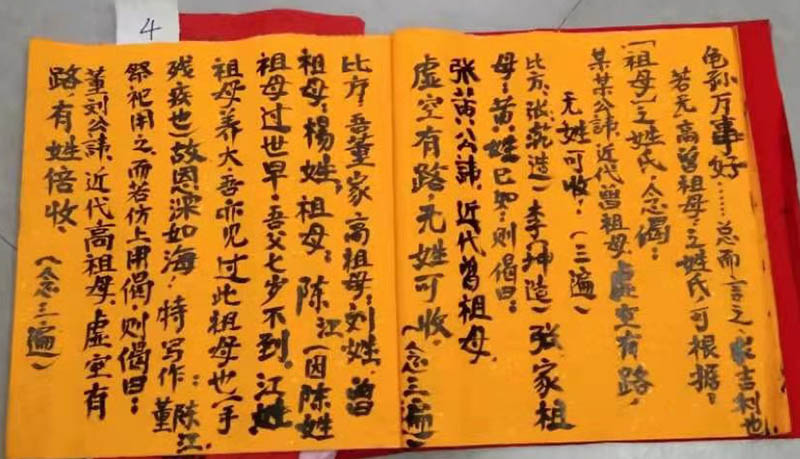 4
龟孙万事好……总而言之求吉利也
若无高曾祖母之姓氏可根据：
「祖母」之姓氏，念偈：
某某公諱，近代曾祖母，虚空有路，
无姓可收。（三遍）
比方：张乾造）李坤造）张家祖
母：黄姓已知，则偈曰：
张黄公諱，近代曾祖母，
虚空有路，无姓可收。
（念三遍）
比方：吾董家高祖母：刘姓，曾
祖母：杨姓，祖母：陈江（因陈姓
祖母过世早，吾父七步不到，江姓
祖母养大吾亦见过此祖母也）手
残疾也）故恩深如海，特写作：陈江，
祭祀用之，而若仿上用偈，则偈曰：董
董刘公諱，近代高祖母，虚空有
路有姓倍收。（念三遍）